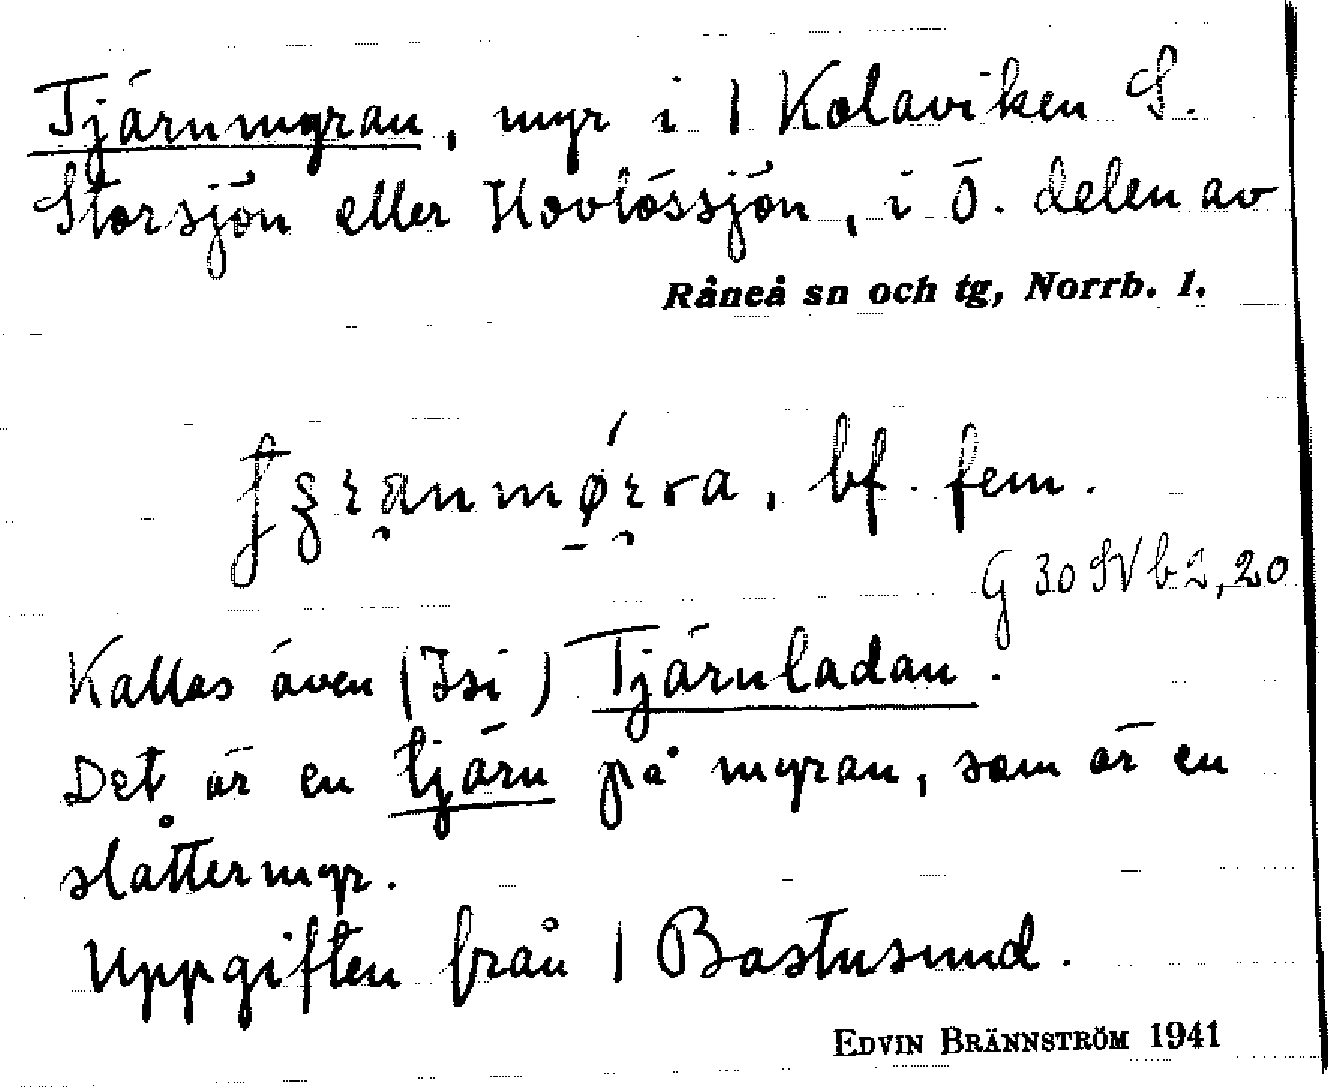 Tjärnmyran, myr i 1 Kolaviken S.
Storsjön eller Hovlössjön, i Ö. delen av
Råneå sn och tg, Norrb. 1.
bf. fem.
G 30 SV b 2, 20
Kallas även (Isi) Tjärnladan.
Det är en tjärn på myran, som är en
slåttermyr.
Uppgiften från 1 Bastusund.
EDVIN BRÄNNSTRÖM 1941